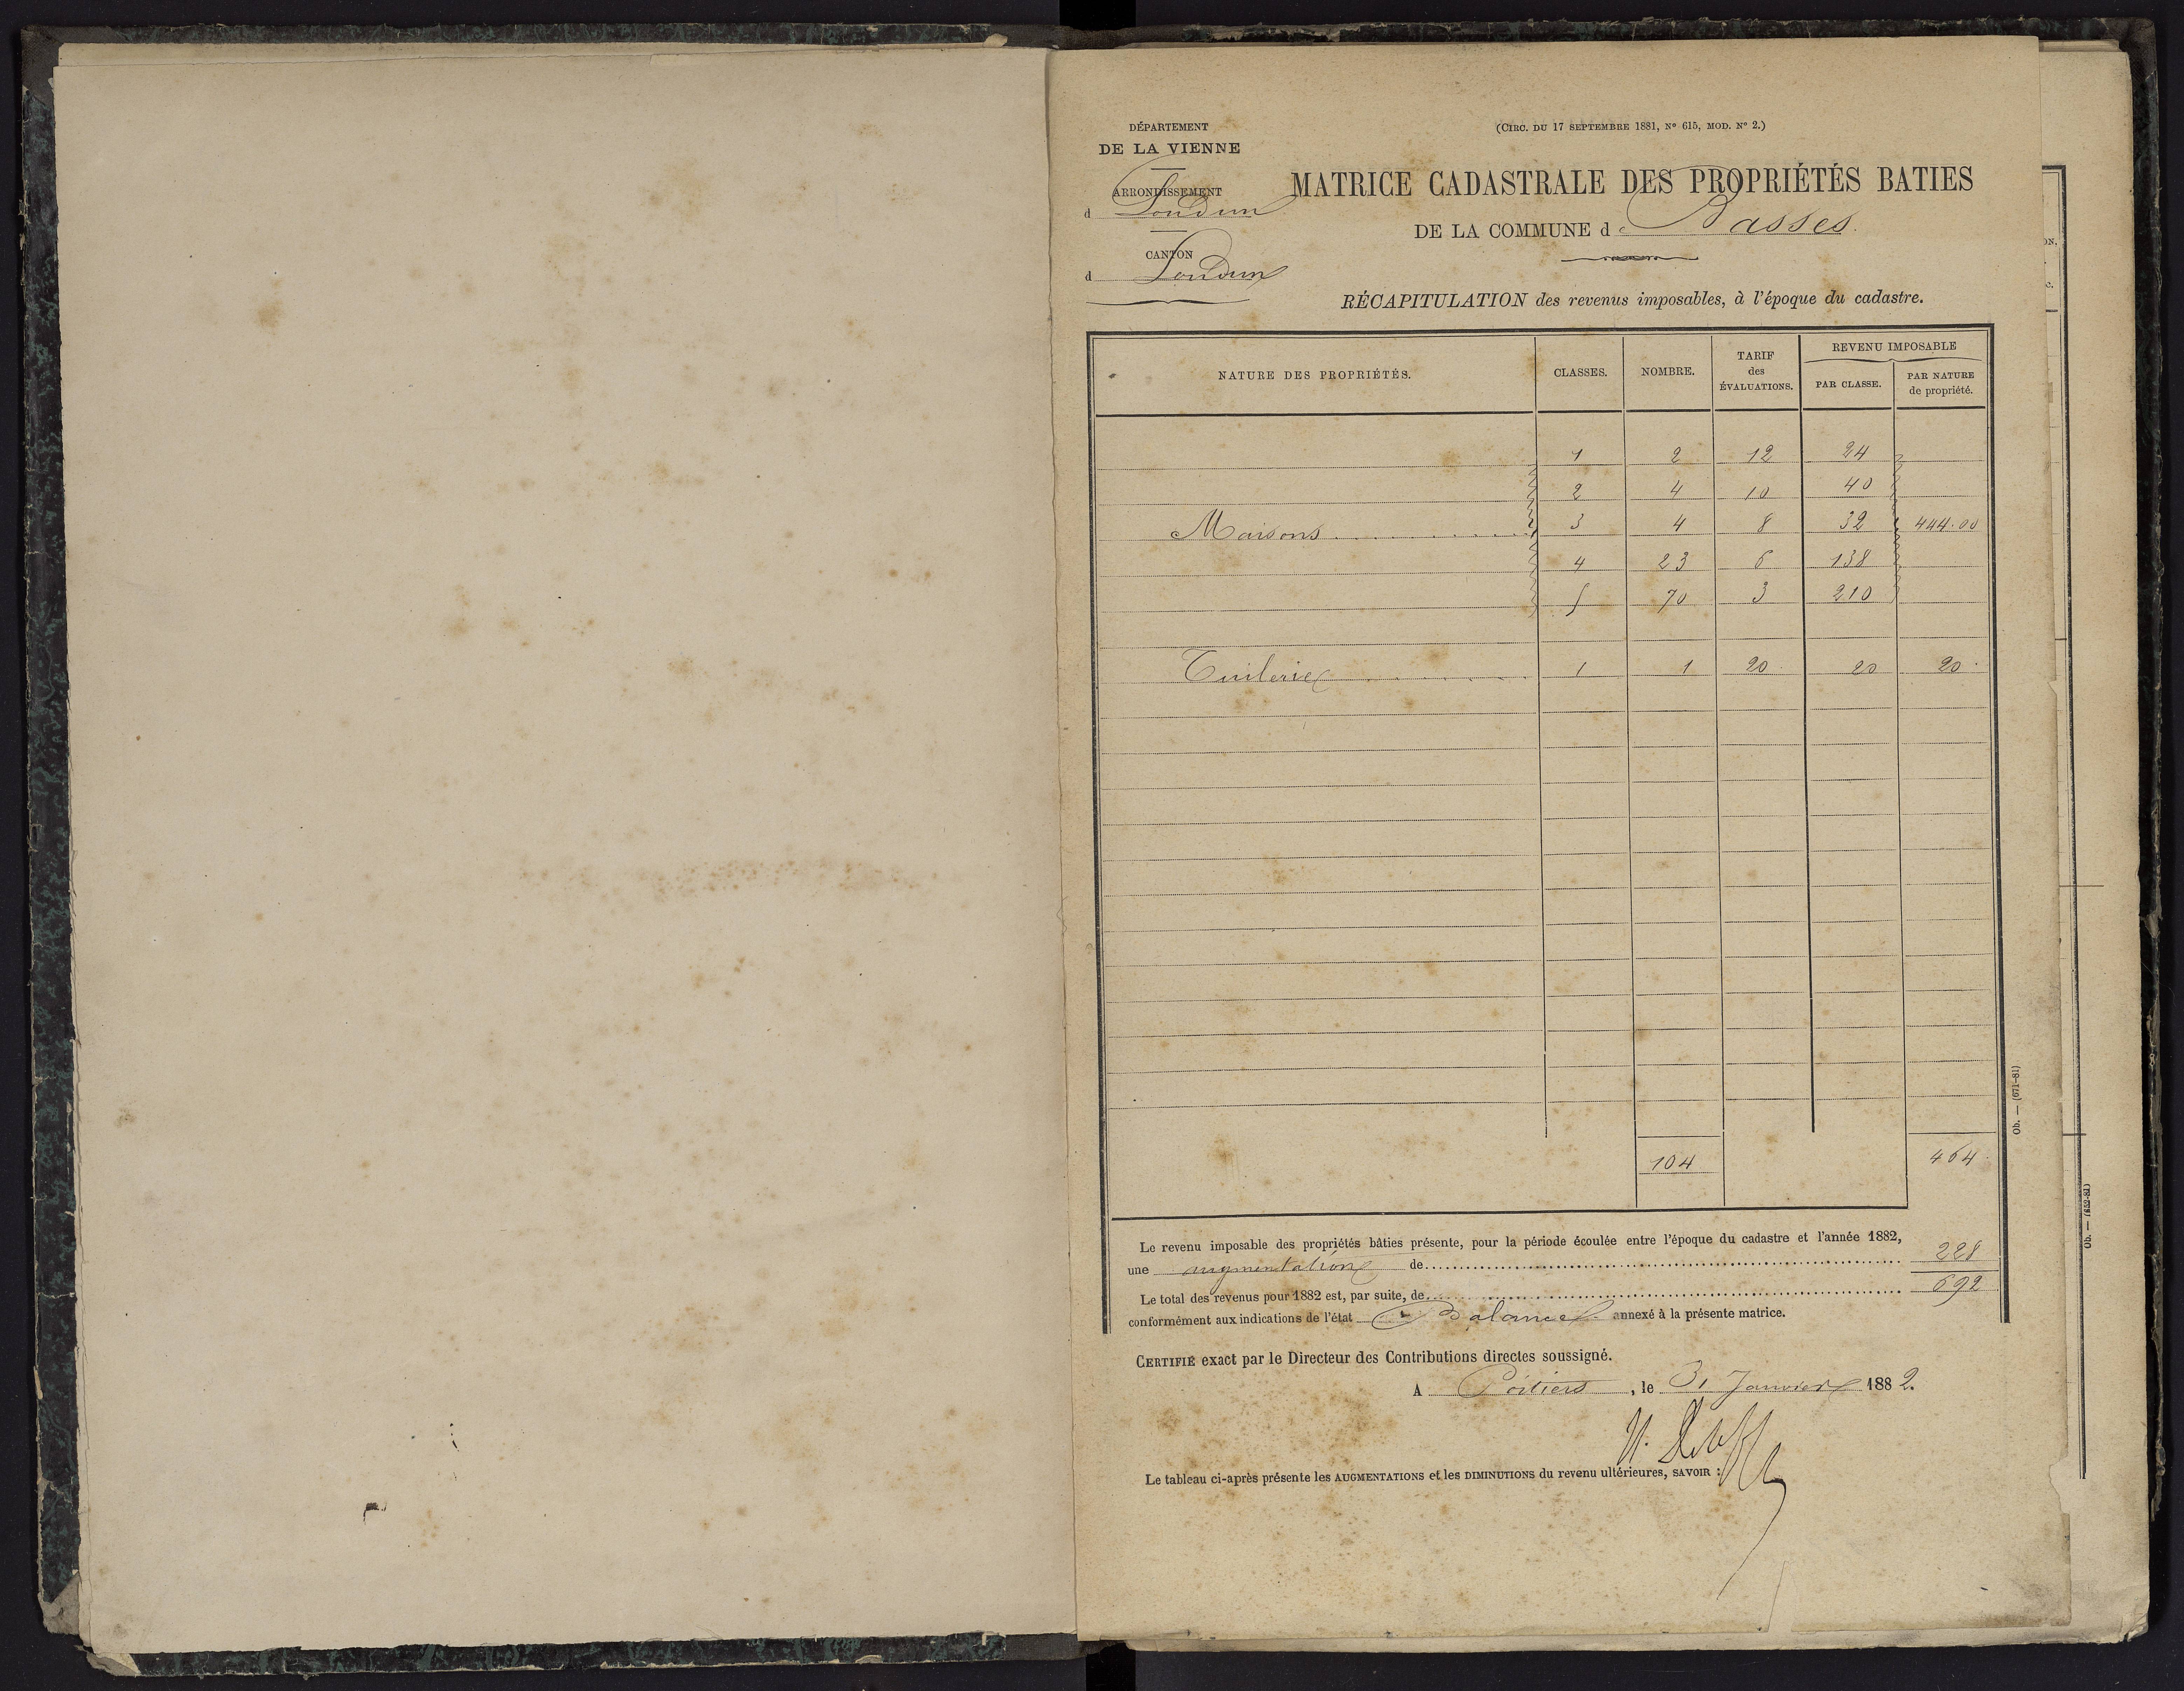 DÉPARTEMENT
DE LA VIENNE
ARRONDISSEMENT
d Loudun
CANTON
d Loudun
(CIRC. DU 17 SEPTEMBRE 1881, N° 615, MOD. N° 2.)
MATRICE CADASTRALE DES PROPRIÉTÉS BATIES
DE LA COMMUNE de Basses.
RÉCAPITULATION des revenus imposables, à l'époque du cadastre.
NATURE DES PROPRIÉTÉS. CLASSES. NOMBRE. TARIF des ÉVALUATIONS. REVENU IMPOSABLE PAR CLASSE. PAR NATURE de propriété.
1 2 12 24
2 4 10 40
Maisons 3 4 8 32 444.00
4 23 6 138
5 70 3 210
Tuilerie 1 1 20. 20 20.
104 464.
Le revenu imposable des propriétés bâties présente, pour la période écoulée entre l'époque du cadastre et l'année 1882,
une augmentation de 228
Le total des revenus pour 1882 est, par suite, de 692
conformément aux indications de l'état Balance annexé à la présente matrice.
CERTIFIÉ exact par le Directeur des Contributions directes soussigné.
A Poitiers, le 31 Janvier 1882.
Le tableau ci-après présente les AUGMENTATIONS et les DIMINUTIONS du revenu ultérieures, SAVOIR :
Ob. — (671-81)
Ob. — (652-81)
ON.
c.